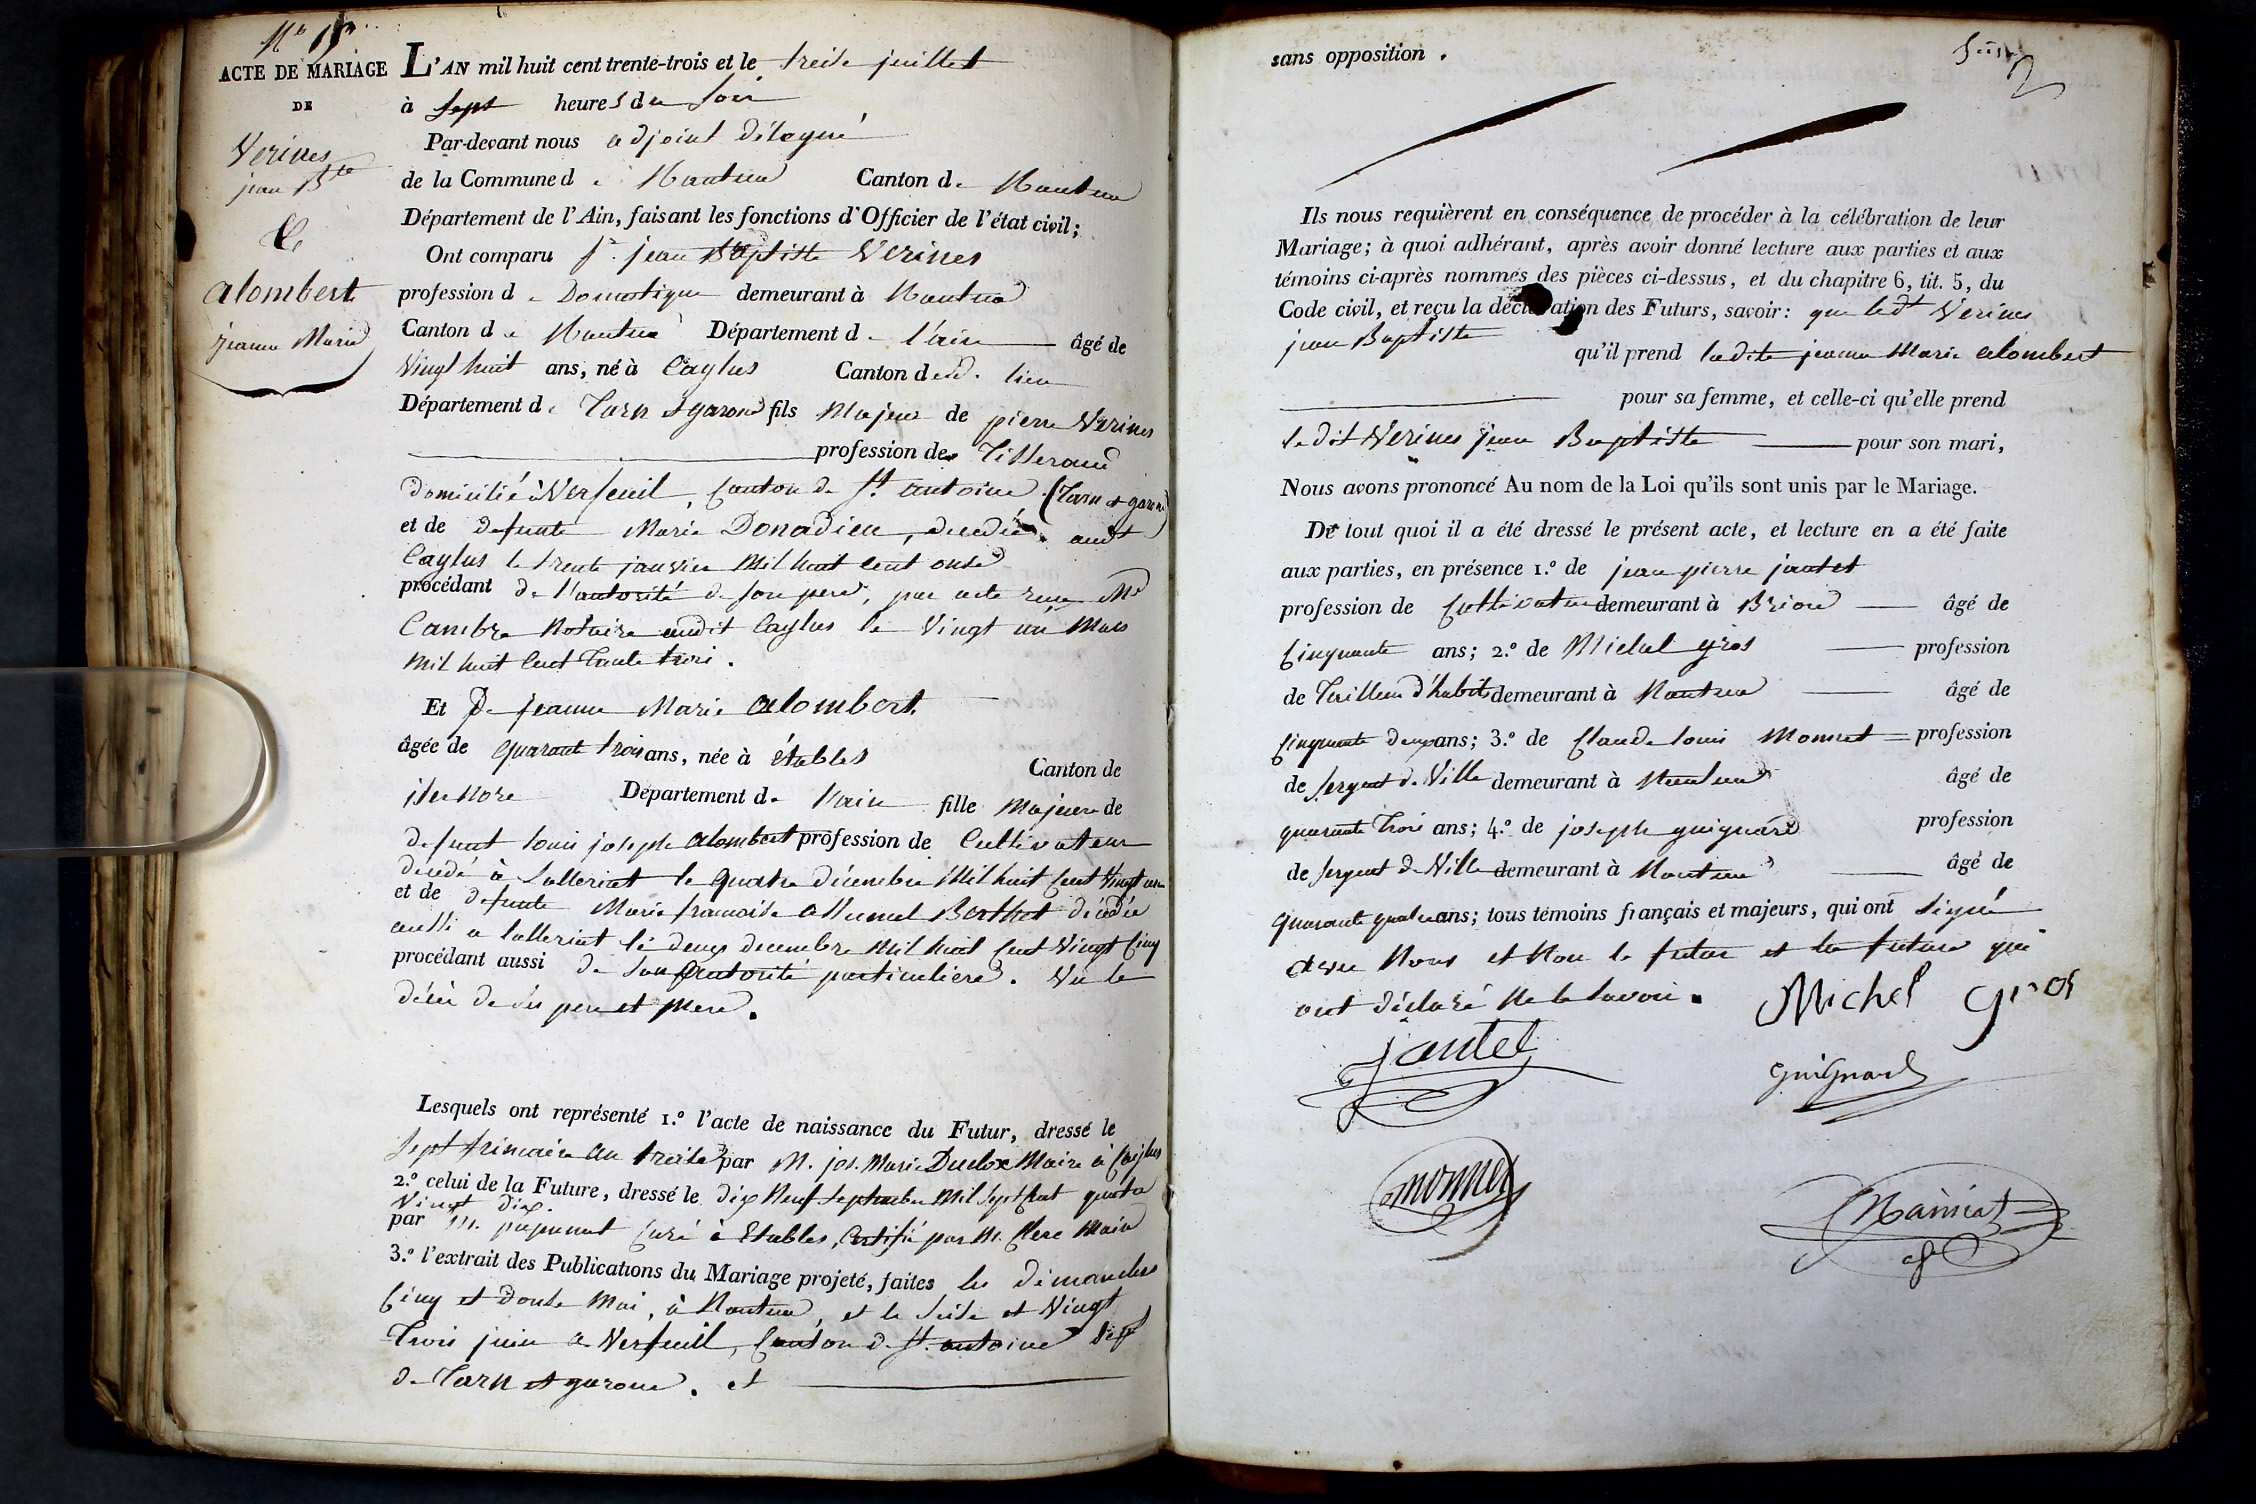 ACTE DE MARIAGE
DE
Verines
jean Bte
&
alombert
jeanne Marie
L'AN mil huit cent trente-trois et le treise juillet
à sept heures du soir
Par-devant nous adjoint délégué
de la Commune de Nantua Canton de Nantua
Département de l'Ain, faisant les fonctions d'Officier de l'état civil;
Ont comparu Sr. jean Baptiste Verines
profession de Domestique demeurant à Nantua
Canton de Nantua Département de l'ain âgé de
Vingt huit ans, né à Caylus Canton dud. lieu
Département de Tarn et garone fils Majeur de pierre Verines
profession de Tisserand
domicilié à Verfeuil, Canton de St. antoine (Tarn et garone)
et de defunte Marie Donadieu, decedée audt
Caylus le trente janvier mil huit cent onse
procédant de l'autorité de son pere, par acte reçu Me
Cambre Notaire audit Caylus le Vingt un Mars
mil huit cent trente trois.
Et De jeanne Marie alombert
âgée de quarant trois ans, née à étables Canton de
isernore Département de l'ain fille Majeure de
defunt louis joseph alombert profession de Cultivateur
decedé à Lalleriat le quatre décembre Mil huit cent Vingt un
et de defunte Marie francoise Berthet décedée
aussi a lalleriat le deux decembre Mil huit Cent Vingt Cinq
procédant aussi de son autorité particuliere. Vu le
décès de ses pere et mere.
Lesquels ont représenté 1.º l'acte de naissance du Futur, dressé le
sept frimaire an treise par M. jos. Marie Duclox Maire à Caylus
2.º celui de la Future, dressé le dix Neuf septembre Mil sept Cent quatre
Vingt dix.
par M. Curé à Etables, Certifié par M. Clerc Maire
3.º l'extrait des Publications du Mariage projeté, faites les dimanches
Cinq et douse Mai, à Nantua, et le seise et Vingt
Trois juin a Verfeuill, Canton de St. antoine dept
de Tarn et garone. et
sans opposition.
Ils nous requièrent en conséquence de procéder à la célébration de leur
Mariage; à quoi adhérant, après avoir donné lecture aux parties et aux
témoins ci-après nommés des pièces ci-dessus, et du chapitre 6, tit. 5, du
Code civil, et reçu la déclaration des Futurs, savoir: que ledt Verines
jean Baptiste qu'il prend ladite jeanne Marie alombert
pour sa femme, et celle-ci qu'elle prend
le dit Verines jean Baptiste pour son mari,
Nous avons prononcé Au nom de la Loi qu'ils sont unis par le Mariage.
De tout quoi il a été dressé le présent acte, et lecture en a été faite
aux parties, en présence 1.º de jean pierre jantet
profession de Cultivateur demeurant à Brion âgé de
Cinquante ans; 2.º de Michel gros profession
de Tailleur d'habits demeurant à Nantua âgé de
Cinquante deux ans; 3.º de Claude louis Monnet profession
de sergent de Ville demeurant à Nantua âgé de
quarante trois ans; 4.º de joseph guignard profession
de sergent de Ville demeurant à Nantua âgé de
quarante quatre ans; tous témoins français et majeurs, qui ont signé
avec Nous et Non le futur et la future qui
ont déclaré Ne le savoir.
Michel gros
jantet
guignard
monnet